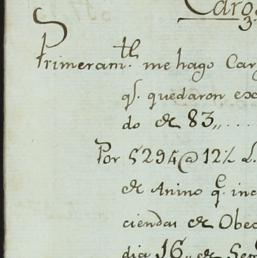 Cargo
3
Primeramte. me hago Car
qe. quedaron exc
do de 83,,....
Por 5295@ 12 ℔
de Anino qe. inc
ciendas de Obeo
dia 16,, de Sem